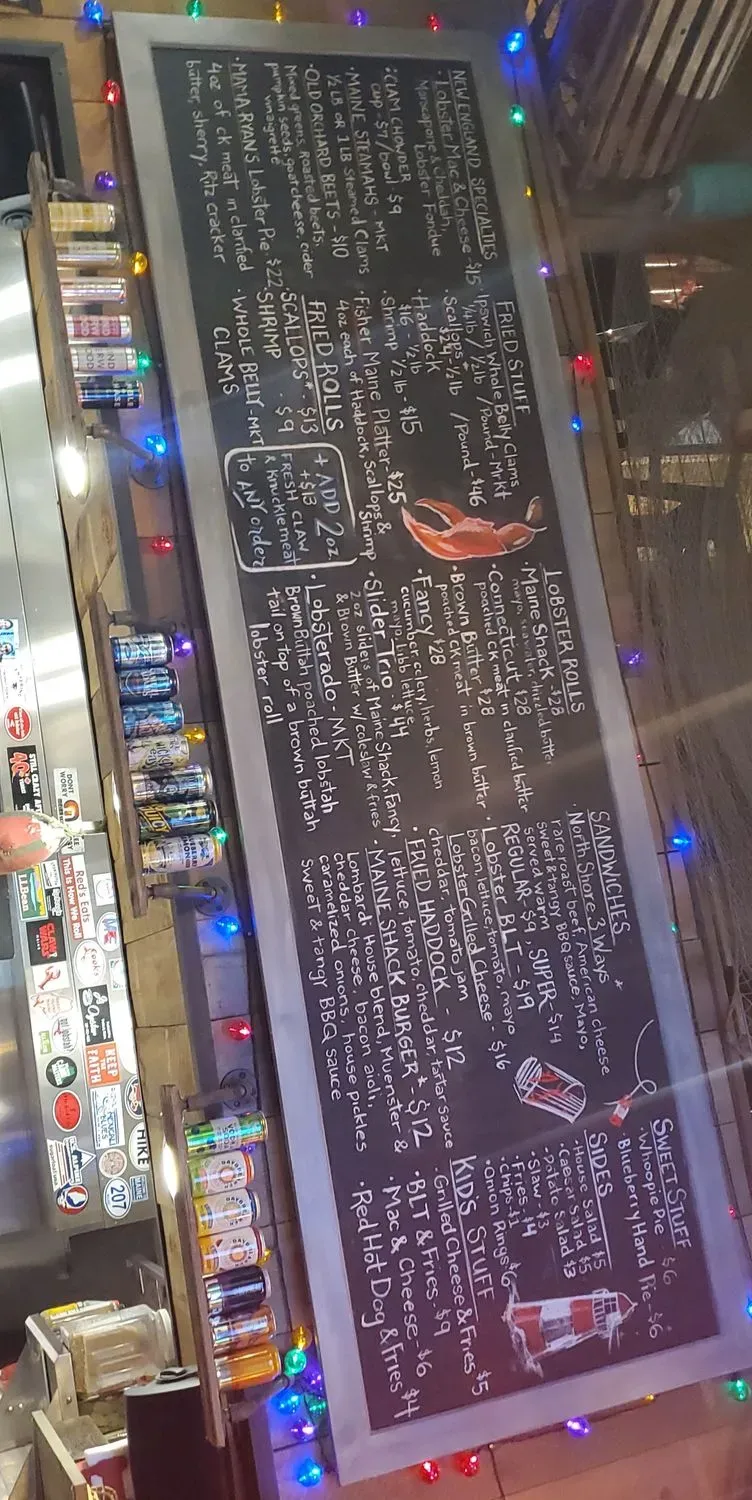 NEW ENGLAND SPECIALTIES
· Lobster Mac & Cheese - $15
Marscapone & Cheddah,
Lobster Fondue
· CLAM CHOWDER
cup - $7/bowl $9
· MAINE STEAMAHS - MKT
1/2 LB or 1 LB Steamed Clams
· OLD ORCHARD BEETS - $10
Mixed greens, roasted beets,
pumpkin seeds, goat cheese, cider
vinaigrette
· MAMA RYAN'S Lobster Pie $22
4oz of ck meat in clarified
butter, sherry, Ritz cracker
FRIED STUFF
· Ipswich Whole Belly Clams
1/4 lb / 1/2 lb / Pound - Mrkt
· Scallops 1/2 lb / Pound - $46
$24
· Haddock
$16 - 1/2 lb
· Shrimp 1/2 lb - $15
· Fisher Maine Platter - $25
4oz each of Haddock, Scallops &
Shrimp
FRIED ROLLS
· SCALLOPS* - $13
· SHRIMP - $9
· WHOLE BELLY - MKT
CLAMS
+ ADD 2oz
+ $13
FRESH CLAW
& Knuckle meat
to ANY order
LOBSTER ROLLS
· Maine Shack - $28
mayo, drizzled butter
· Connecticut $28
poached CK meat in clarified butter
· Brown Butter $28
poached CK meat in brown butter
· Fancy $28
cucumber, celery, herbs, lemon
mayo, bibb lettuce
· Slider Trio $44
2oz sliders of Maine Shack, Fancy,
& Brown Butter w/ coleslaw & fries
· Lobsterado - MKT
Brown Buttah poached lobstah
tail on top of a brown buttah
lobster roll
SANDWICHES
· North Shore 3 Ways *
rare roast beef, American cheese
sweet & tangy BBQ sauce, Mayo,
served warm
REGULAR - $9, SUPER - $14
· Lobster BLT - $19
bacon, lettuce, tomato, mayo
Lobster Grilled Cheese $16
cheddar, Tomato jam
· FRIED HADDOCK - $12
lettuce, tomato, cheddar, tartar sauce
· MAINE SHACK BURGER* - $12
Lombardi House blend, Muenster &
cheddar cheese, bacon aioli,
caramelized onions, house pickles
sweet & tangy BBQ sauce
SWEET STUFF
· Whoopie Pie - $6
· Blueberry Hand Pie - $6
SIDES
· House Salad $5
· Caesar Salad $5
· Potato Salad $3
· Slaw - $3
· Fries - $4
· Chips - $1
· Onion Rings $6
KID'S STUFF
· Grilled Cheese & Fries $5
· BLT & Fries - $9
· Mac & Cheese - $6
· Red Hot Dog & Fries $4
DON'T
WORRY
Red's Eats
This is How We Roll
L.L.Bean
CLAW
KEEP
THE
FAITH
HIKE
207